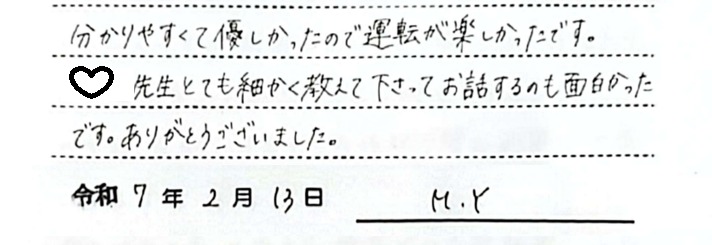 分かりやすくて優しかったので運転が楽しかったです。
♡ 先生とても細かく教えて下さってお話するのも面白かった
です。ありがとうございました。
令和 7 年 2 月 13 日 M.Y